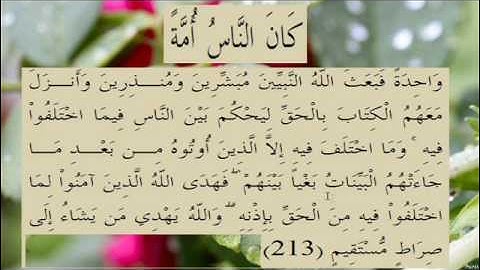 كَانَ النَّاسُ أُمَّةً
وَاحِدَةً فَبَعَثَ اللَّهُ النَّبِيِّينَ مُبَشِّرِينَ وَمُنذِرِينَ وَأَنزَلَ
مَعَهُمُ الْكِتَابَ بِالْحَقِّ لِيَحْكُمَ بَيْنَ النَّاسِ فِيمَا اخْتَلَفُوا
فِيهِ ۚ وَمَا اخْتَلَفَ فِيهِ إِلَّا الَّذِينَ أُوتُوهُ مِن بَعْدِ مَا
جَاءَتْهُمُ الْبَيِّنَاتُ بَغْيًا بَيْنَهُمْ ۖ فَهَدَى اللَّهُ الَّذِينَ آمَنُوا لِمَا
اخْتَلَفُوا فِيهِ مِنَ الْحَقِّ بِإِذْنِهِ ۗ وَاللَّهُ يَهْدِي مَن يَشَاءُ إِلَى
صِرَاطٍ مُّسْتَقِيمٍ (213)